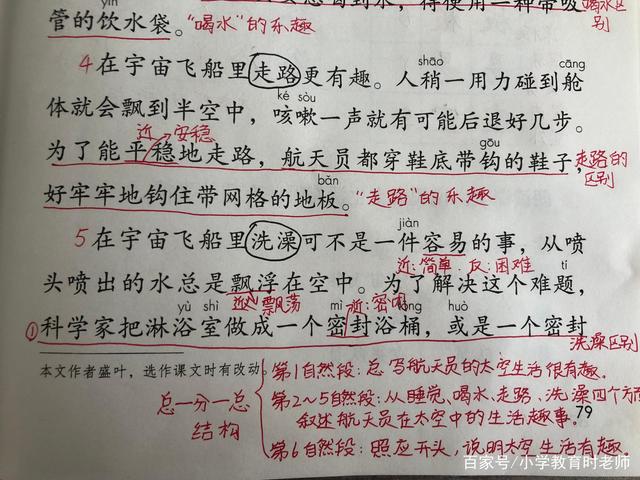 喝水区别
管的饮水袋。“喝水”的乐趣
shāo cāng
4 在宇宙飞船里走路更有趣。人稍一用力碰到舱
ké sòu
体就会飘到半空中，咳嗽一声就有可能后退好几步。
近 安稳 gōu
为了能平稳地走路，航天员都穿鞋底带钩的鞋子，走路的区别
bǎn
好牢牢地钩住带网格的地板。“走路”的乐趣
jiàn
5 在宇宙飞船里洗澡可不是一件容易的事，从喷
近：简单 反：困难 tí
头喷出的水总是飘浮在空中。为了解决这个难题，
yù shì 近 飘荡 mì 近：密闭 tǒng huò
①科学家把淋浴室做成一个密封浴桶，或是一个密封
洗澡区别
本文作者盛叶，选作课文时有改动
总一分一总
结构
第1自然段：总写航天员的太空生活很有趣。
第2～5自然段：从睡觉、喝水、走路、洗澡四个方
叙述航天员在太空中的生活趣事。
79
第6自然段：照应开头，说明太空生活有趣。
百家号/小学教育时老师